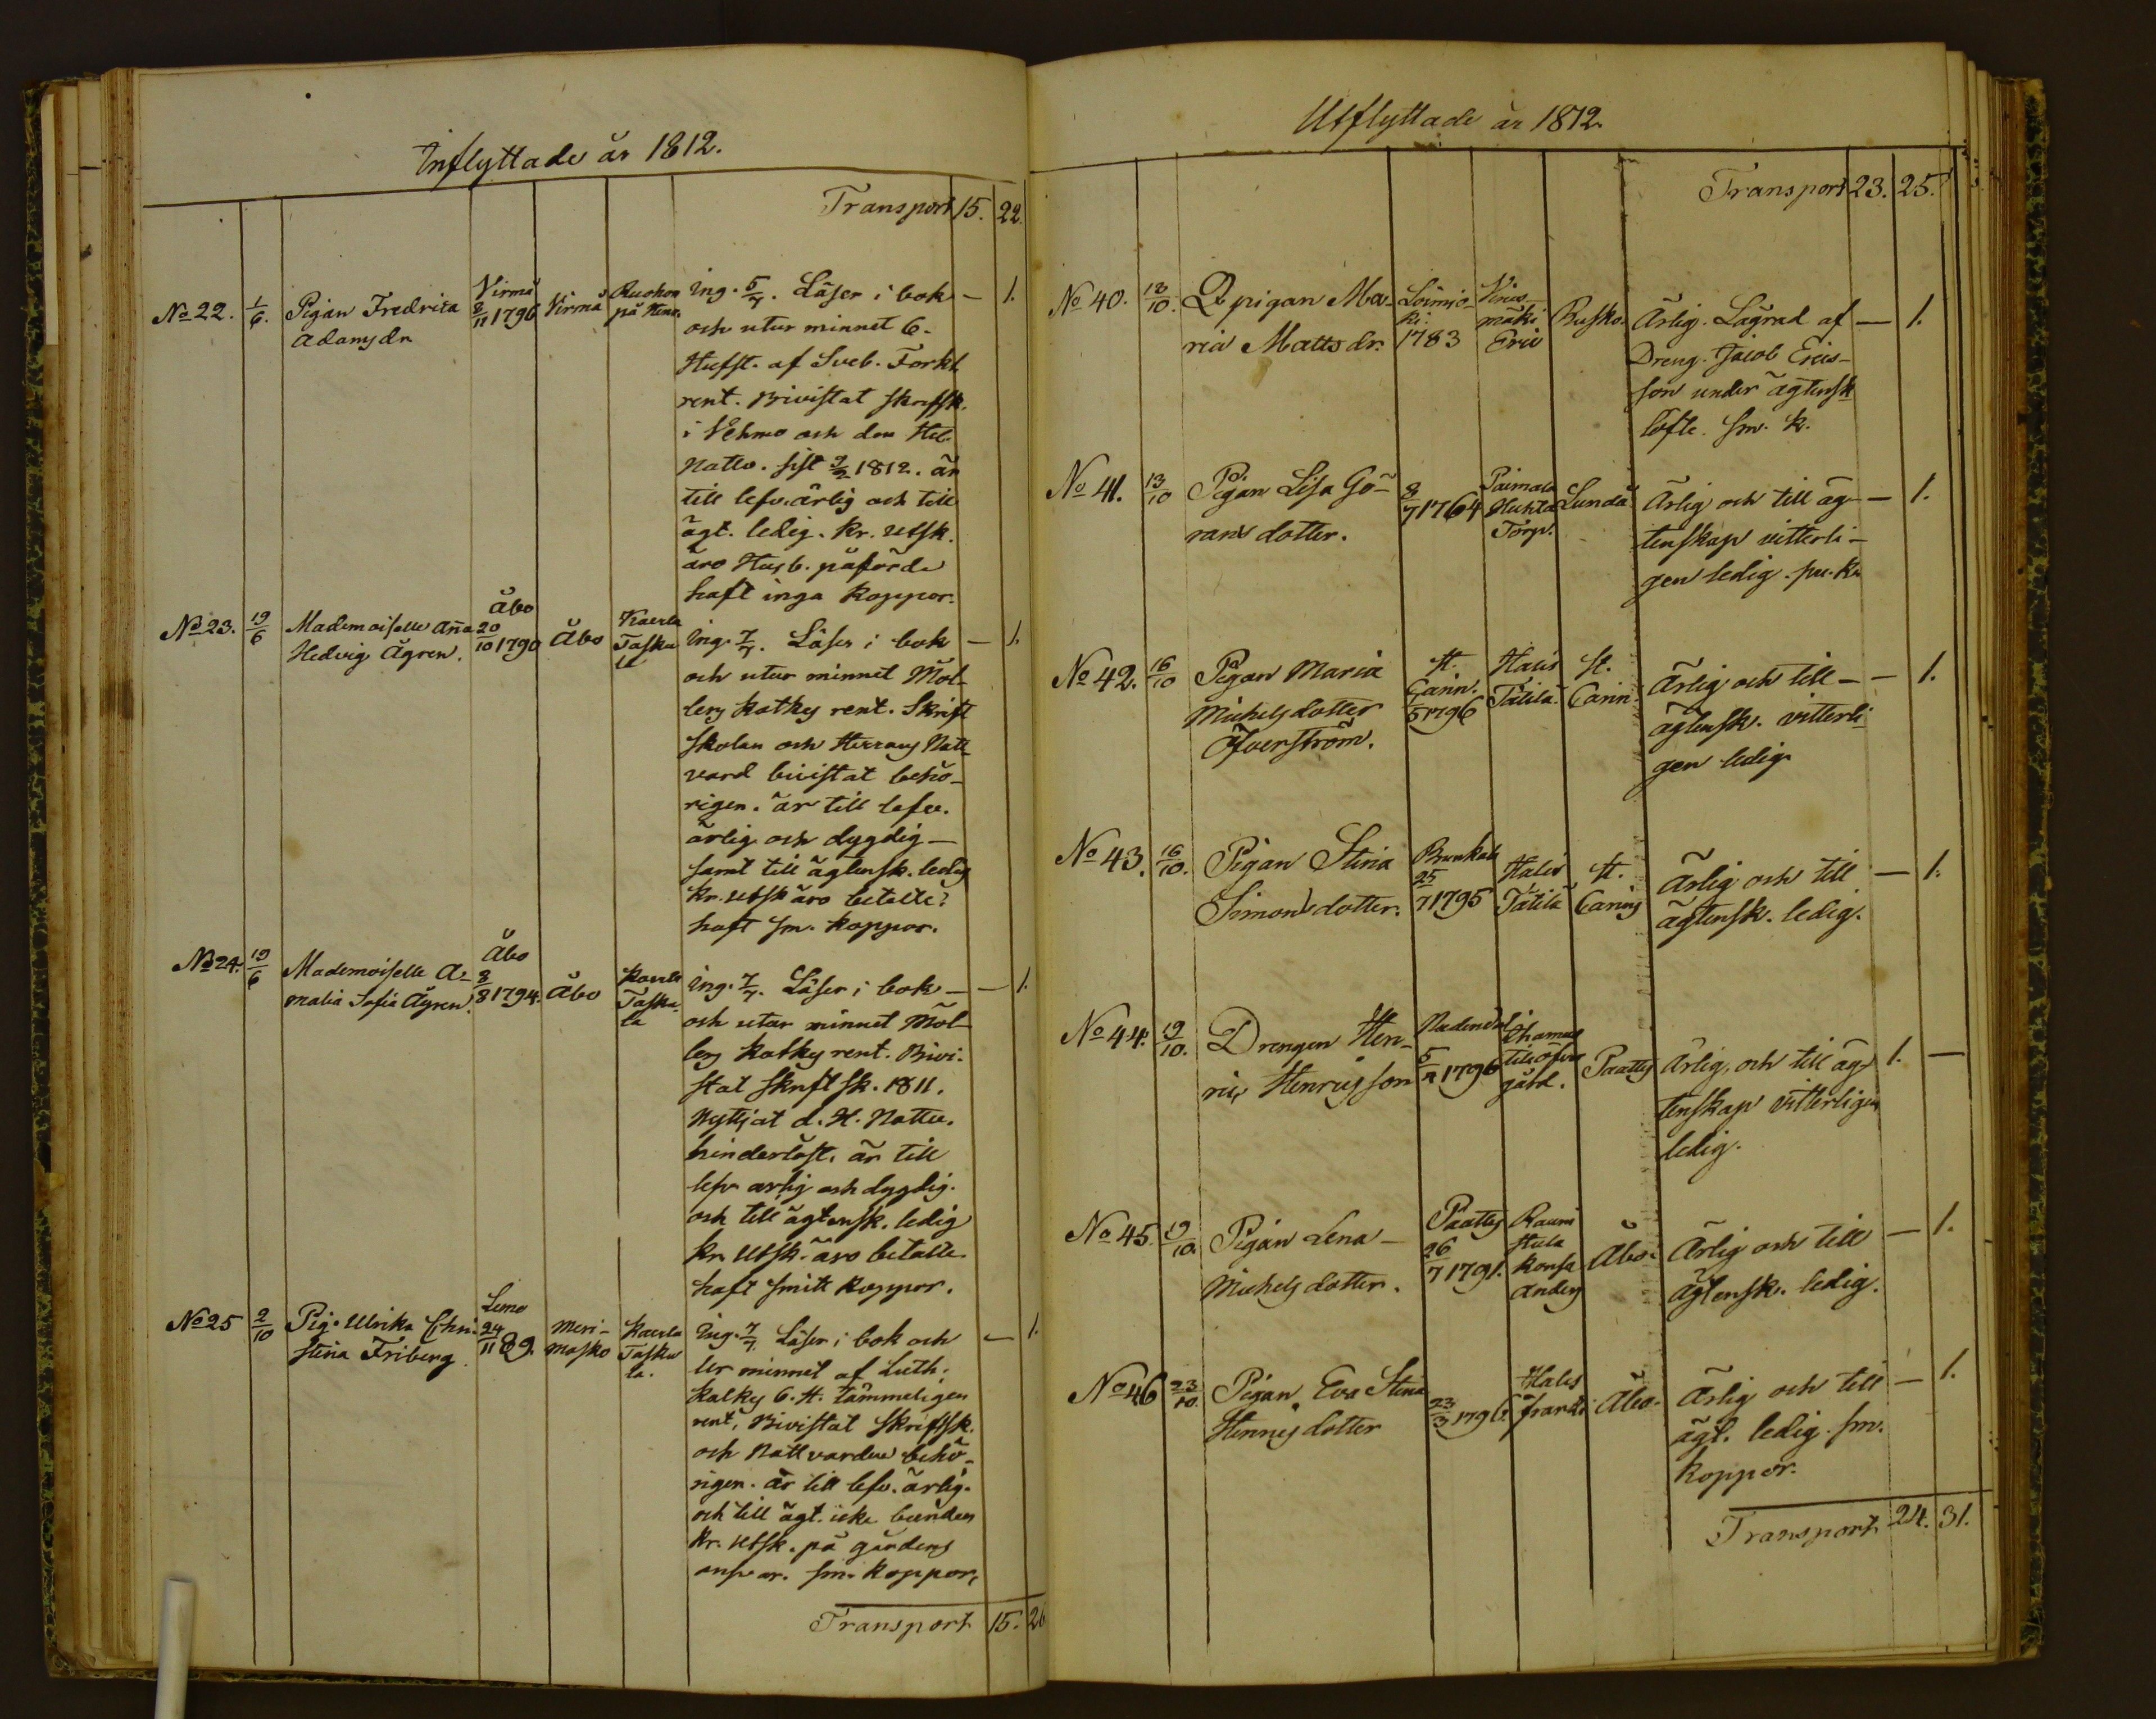 Inflyttade år 1812.
Transport 15. 22.
No 22. 1/6. Pigan Fredrica Adamsdr Virmå 8/11 1796 Virmå
Ing. 5/7. Läser i bok — 1.
och utur minnet 6.
Hufst. af Sveb. Forkl.
rent. Bivistat skriftsk.
i Vehmo och den Hel.
Nattv. sist 2/2 1812. är
till lefv. ärlig och till
ägt. ledig. Kr. utsk.
äro Husb. påförde
haft inga koppor.
No 23. 19/6 Mademoiselle Aña Hedvig Ågren. Åbo 20/10 1790 Åbo Kaerla Taskula
Ing. 7/7. Läser i bok — 1.
och utur minnet Möl-
lers Katkes rent. Skrift
skolan och Herrans Natt
vard bivistat behö-
rigen. är till lefv.
ärlig och dygdig —
samt till ägtensk. ledig
Kr. utsk äro betalte.
haft sm. koppor.
No 24. 19/6 Mademoiselle A- malia Sofia Ågren. Åbo 8/8 1794. Åbo Kaerla Taskula
Ing. 7/7. Läser i bok — — 1.
och utur minnet Möl-
lers Katkes rent. Bivi-
stat skriftsk. 1811.
Nyttjat d. H. Nattv.
hinderlöst. är till
lefv ärlig och dygdig.
och till ägtensk. ledig
Kr. Utsk. äro betalte.
haft smitt koppor.
No 25 2/10 Pig. Ulrika Chri- stina Friberg. Lemo 24/11 89. Meri- masko Kaerla Taskula.
Ing. 7/7. Läser i bok och — 1.
ur minnet af Luth.
Katkes 6. H. tämmeligen
rent, Bivistat Skriftsk.
och Nattvarden behö-
rigen. är till lefv. ärlig.
och till ägt. icke bunden
Kr. Utsk. på gårdens
ansvar. sm. koppor.
Transport 15. 26
Utflyttade år 1812.
Transport 23. 25.
No 40. 12/10. Qpigan Ma- Loimjo- Ärlig. Lägrad af — 1.
ria Mattsdr. ki. 1783 mäki Eric Rusko. Dreng. Jacob Erics-
son under ägtensk
löfte. sm. k.
No 41. 13/10 Pigan Lisa Gö- 8/7 1764 Paimala Huhta Torp. Lundå Ärlig och till äg- — 1.
rans dotter. tenskap vitterli-
gen ledig.
No 42. 16/10 Pigan Maria St. Carin. Halis St. Carin Ärlig och till — — 1.
Michelsdotter 1/5 1796 Tätilä. ägtensk. vitterli
Öfverström. gen ledig
No 43. 16/10. Pigan Stina Brunkala 25/7 1795 Halis Tätilä St. Carins Ärlig och till — 1.
Simons dotter. ägtensk. ledig.
No 44. 19/10. Drengen Hen- Nadendal 5/7 1796 Paattis Ärlig, och till äg- 1. —
ric Henricsson gård. tenskap vitterligen
ledig.
No 45. 19/10. Pigan Lena — Paattis 26/7 1791. Raunistula Konsa Anders Åbo. Ärlig och till — 1.
Michels dotter. Ägtensk. ledig.
No 46 23/10. Pigan Eva Stina 23/3 1796. Halis Frantsi Åbo. Ärlig och till — 1.
Hennes dotter ägt. ledig. sm.
koppor.
Transport 24. 31.